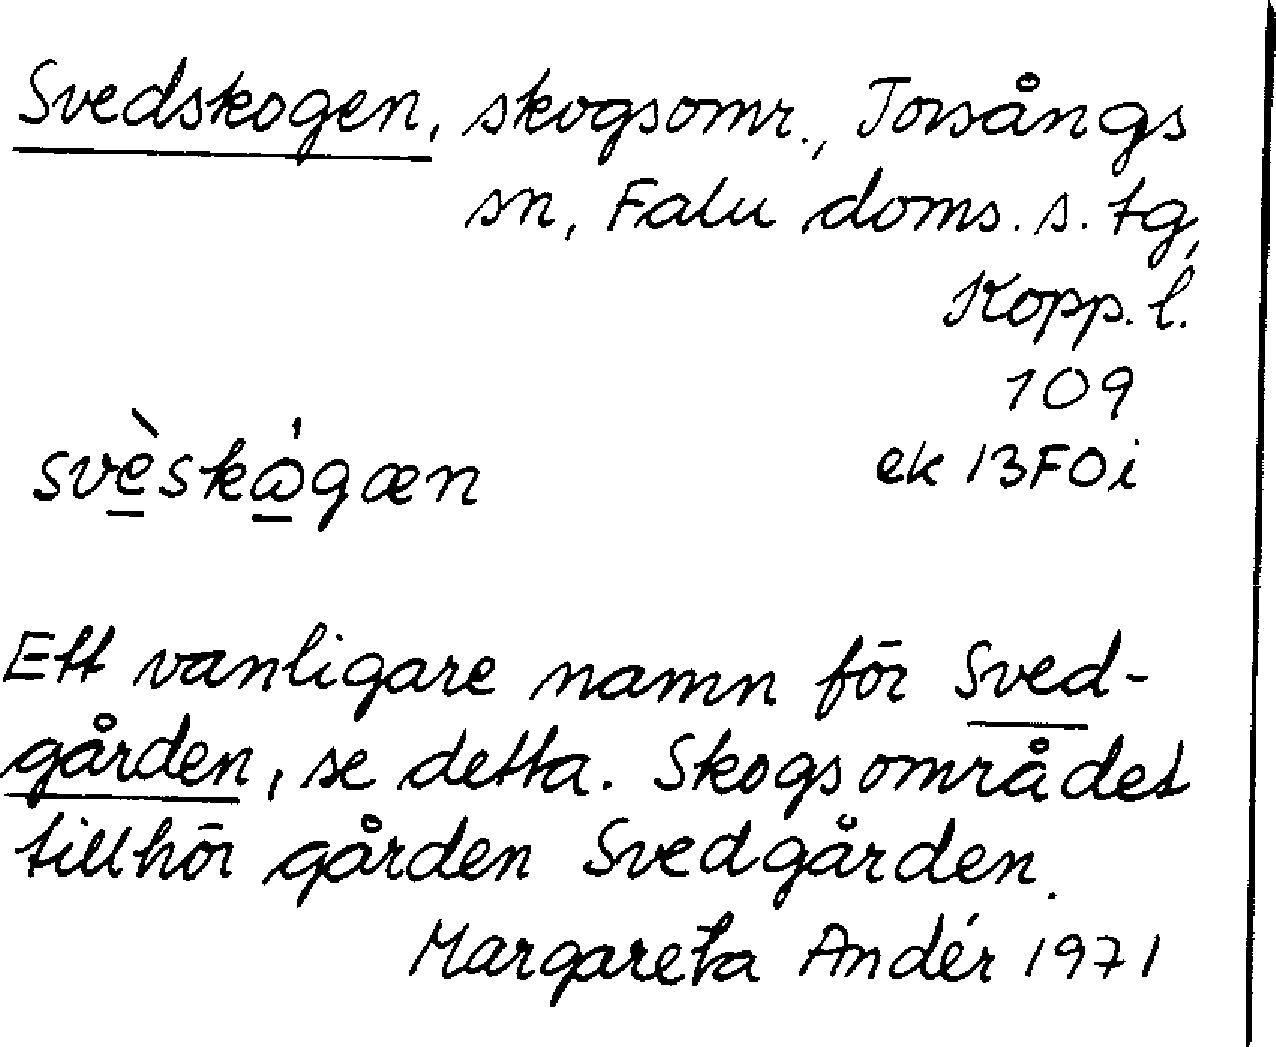 Svedskogen, skogsomr., Torsångs
sn, Falu doms. s. tg,
Kopp. l.
109
ek 13F0i
svèskágæn
Ett vanligare namn för Sved-
gården, se detta. Skogsområdet
tillhör gården Svedgården.
Margareta Andér 1971